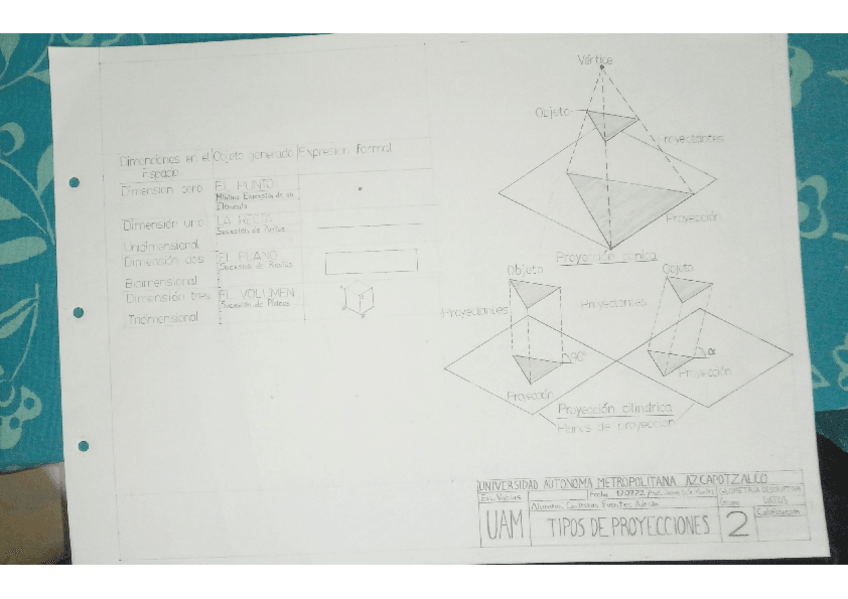 Dimenciones en el
Espacio
Objeto generado
Expresion Formal
Dimensión cero
EL PUNTO
Minima Expresión de un
Elemento
Dimensión uno
Unidimensional
LA RECTA
Sucesión de Puntos
Dimensión dos
Bidimensional
EL PLANO
Sucesion de Rectas
Dimensión tres
Tridimensional
EL VOLUMEN
Sucesion de Planos
Vértice
Objeto
Proyectantes
Proyección
Proyección cónica
Objeto
Objeto
Proyectantes
Proyectantes
90°
α
Proyección
Proyección
Proyección cilindrica
Planos de proyección
UNIVERSIDAD AUTONOMA METROPOLITANA AZCAPOTZALCO
Fecha
GEOMETRIA DESCRIPTIVA
Grupo
Alumno: Contreras Fuentes
UAM
TIPOS DE PROYECCIONES
2
Calificación